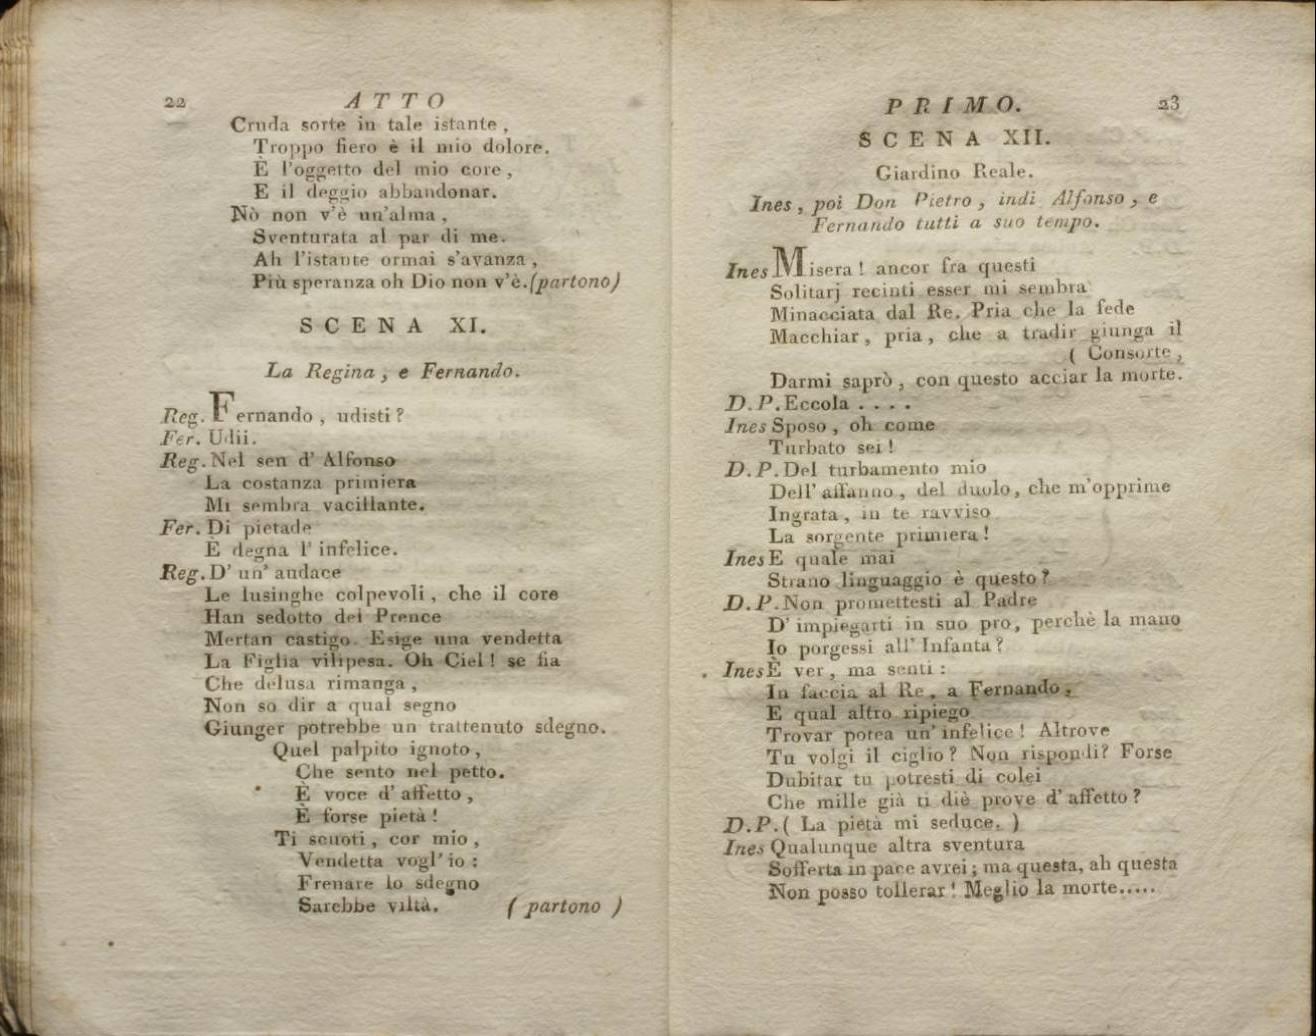 22 ATTO
Cruda sorte in tale istante,
Troppo fiero è il mio dolore.
È l'oggetto del mio core,
E il deggio abbandonar.
Nò non v'è un'alma,
Sventurata al par di me.
Ah l'istante ormai s'avanza,
Più speranza oh Dio non v'è.(partono)
SCENA XI.
La Regina, e Fernando.
Reg. Fernando, udisti?
Fer. Udii.
Reg. Nel sen d' Alfonso
La costanza primiera
Mi sembra vacillante.
Fer. Di pietade
È degna l' infelice.
Reg. D' un' audace
Le lusinghe colpevoli, che il core
Han sedotto del Prence
Mertan castigo. Esige una vendetta
La Figlia vilipesa. Oh Ciel! se fia
Che delusa rimanga,
Non so dir a qual segno
Giunger potrebbe un trattenuto sdegno.
Quel palpito ignoto,
Che sento nel petto.
È voce d' affetto,
È forse pietà!
Ti scuoti, cor mio,
Vendetta vogl' io:
Frenare lo sdegno
Sarebbe viltà. (partono)
PRIMO. 23
SCENA XII.
Giardino Reale.
Ines, poi Don Pietro, indi Alfonso, e
Fernando tutti a suo tempo.
Ines Misera! ancor fra questi
Solitarj recinti esser mi sembra
Minacciata dal Re. Pria che la fede
Macchiar, pria, che a tradir giunga il
( Consorte,
Darmi saprò, con questo acciar la morte.
D.P. Eccola ....
Ines Sposo, oh come
Turbato sei!
D.P. Del turbamento mio
Dell' affanno, del duolo, che m'opprime
Ingrata, in te ravviso
La sorgente primiera!
Ines E quale mai
Strano linguaggio è questo?
D.P. Non promettesti al Padre
D' impiegarti in suo pro, perchè la mano
Io porgessi all' Infanta?
Ines È ver, ma senti:
In faccia al Re, a Fernando,
E qual altro ripiego
Trovar potea un' infelice! Altrove
Tu volgi il ciglio? Non rispondi? Forse
Dubitar tu potresti di colei
Che mille già ti diè prove d' affetto?
D.P. ( La pietà mi seduce. )
Ines Qualunque altra sventura
Sofferta in pace avrei; ma questa, ah questa
Non posso tollerar! Meglio la morte.....